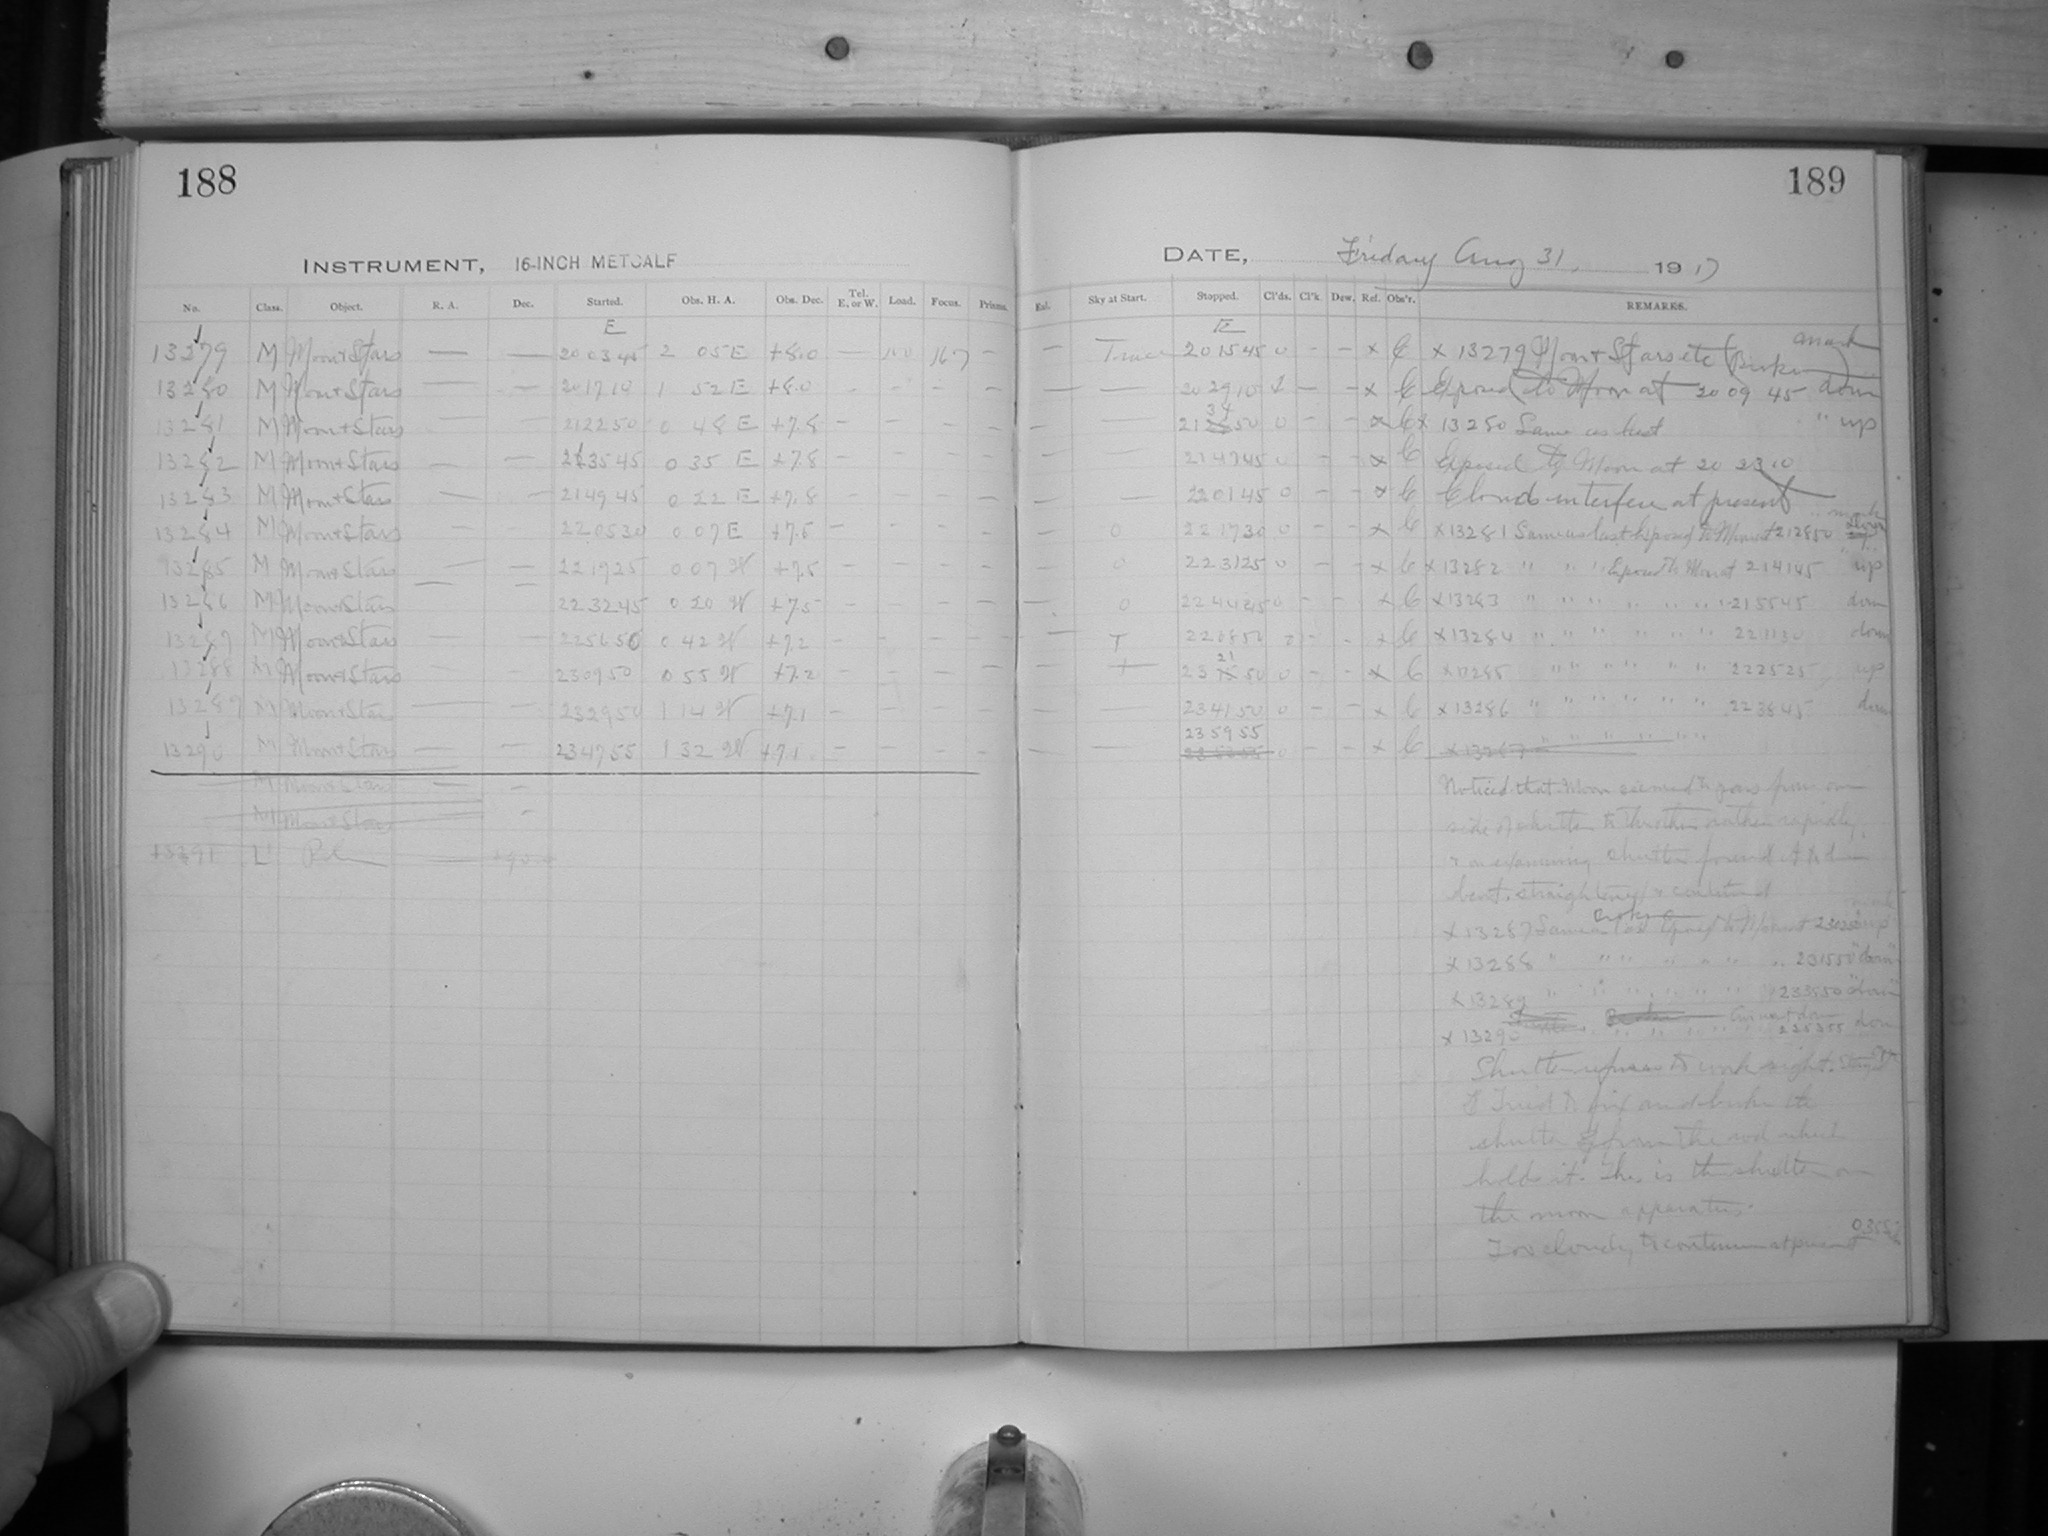 188
INSTRUMENT, 16-INCH METCALF
No. Class. Object. R. A. Dec. Started. Obs. H. A. Obs. Dec. Tel. E. or W. Load. Focus. Prisms.
E
13279 M Moon+Stars — — 200345 2 05 E +8.0 — 160 167 —
13280 M Moon+Stars — — 201710 1 52 E +8.0 - - - - —
13281 M Moon+Stars 212250 0 48 E +7.8 - - - - -
13282 M Moon+Stars — — 213545 0 35 E +7.8 - - - -
13283 M Moon+Stars — — 214945 0 22 E +7.8 - - - - -
13284 M Moon+Stars — — 220530 0 07 E +7.5 - - - - -
13285 M Moon+Stars — — 221925 0 07 W +7.5 - - - - -
13286 M Moon+Stars — — 223245 0 20 W +7.5 - - - - -
13287 M Moon+Stars — — 225650 0 42 W +7.2 - - - - -
13288 M Moon+Stars — — 230950 0 55 W +7.2 - - - - -
13289 M Moon+Stars — — 232950 1 14 W +7.1 - - - - -
13290 M Moon+Stars — — 234755 1 32 W +7.1 - - - - -
M Moon+Stars — -
M Moon+Stars -
13291 L Pole — +90
189
DATE, Friday Aug 31, 1917
Exl. Sky at Start. Stopped. Cl'ds. Cl'k. Dew. Ref. Obs'r. REMARKS.
E
— Trace 201545 0 - - x C x 13279 Moon+Stars etc mark
— — 202910 - - x C Exposed to Moon at 20 09 45 down
— — 213450 0 - - x C x 13280 Same as last " up
— 214745 0 - - x C Exposed to Moon at 20 23 10
— — 220145 0 - - x C Clouds interfere at present
0 221730 0 - - x C x 13281 Same as last Exposed to Moon at 212850
0 223125 0 - - x C x 13282 " " " Exposed to Moon at 214145 "up"
0 224445 0 - - x C x 13283 " " " " " " 215545 down
T 220850 - - x C x 13284 " " " " " " 221130 down
232150 0 - - x C x 13285 " " " " " 222525 up
— — 234150 0 - - x C x 13286 " " " " " " 223845 down
— 235955 0 - - x C x 13287 " " " " "
Noticed that Moon seemed to pass from one
side of shutter to the other rather rapidly,
& on examining shutter found it
bent. straightened & continued
x 13287 Same as last Exposed to Moon at up
x 13288 " " " " " " " 231550 "down"
x 13289 " " " " " " 233550 "down"
x 13290 " " " " " 225355 down
Shutter refuses to work right.
Tried to fix and broke the
shutter off from the rod which
holds it. This is the shutter on
the moon apparatus.
Too cloudy to continue at present